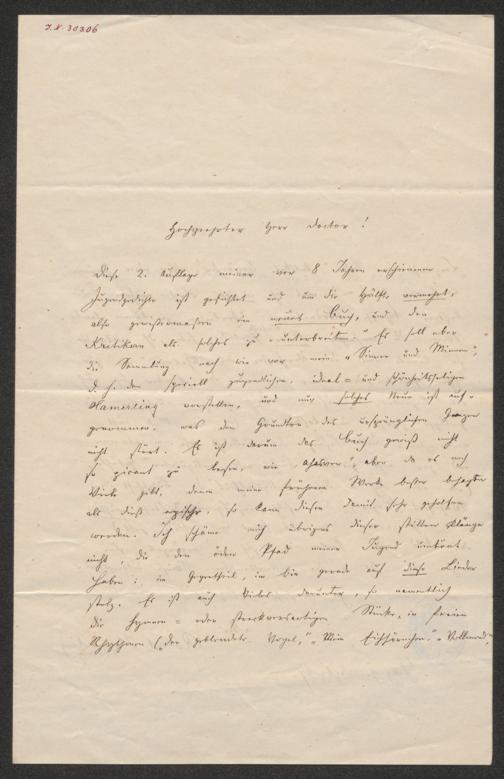 I.N. 30306
Hochgeehrter Herr Doctor!
Diese 2. Auflage meiner vor 8 Jahren erschienenen
Jugendgedichte ist gesichtet und um die Hälfte vermehrt,
also gewissermaßen ein neues Buch, und den
Kritikern als solches zu „unterbreiten." Es soll aber
die Sammlung nach wie vor mein „Sinnen und Minnen",
d. h. den speziell jugendlichen, ideal- und schönheitsseligen
Hamerling vorstellen, und nur solches Neue ist auf-
genommen, was den Grundton des ursprünglichen Ganzen
nicht stört. Es ist darum das Buch gewiß nicht
so pikant zu lesen, wie „Ahasver", aber da es noch
Viele gibt, denen meine früheren Werke besser behagten
als dieß epische, so kann diesen damit sehr geholfen
werden. Ich schäme mich übrigens dieser stillen Klänge
nicht, die den öden Pfad meiner Jugend umtönt
haben: im Gegentheil, ich bin gerade auf diese Lieder
stolz. Es ist auch Vieles darunter, so namentlich
die hymnen- oder Stücke, in freien
Rhythmen („Der geblendete Vogel," „Mein Eichhörnchen,"